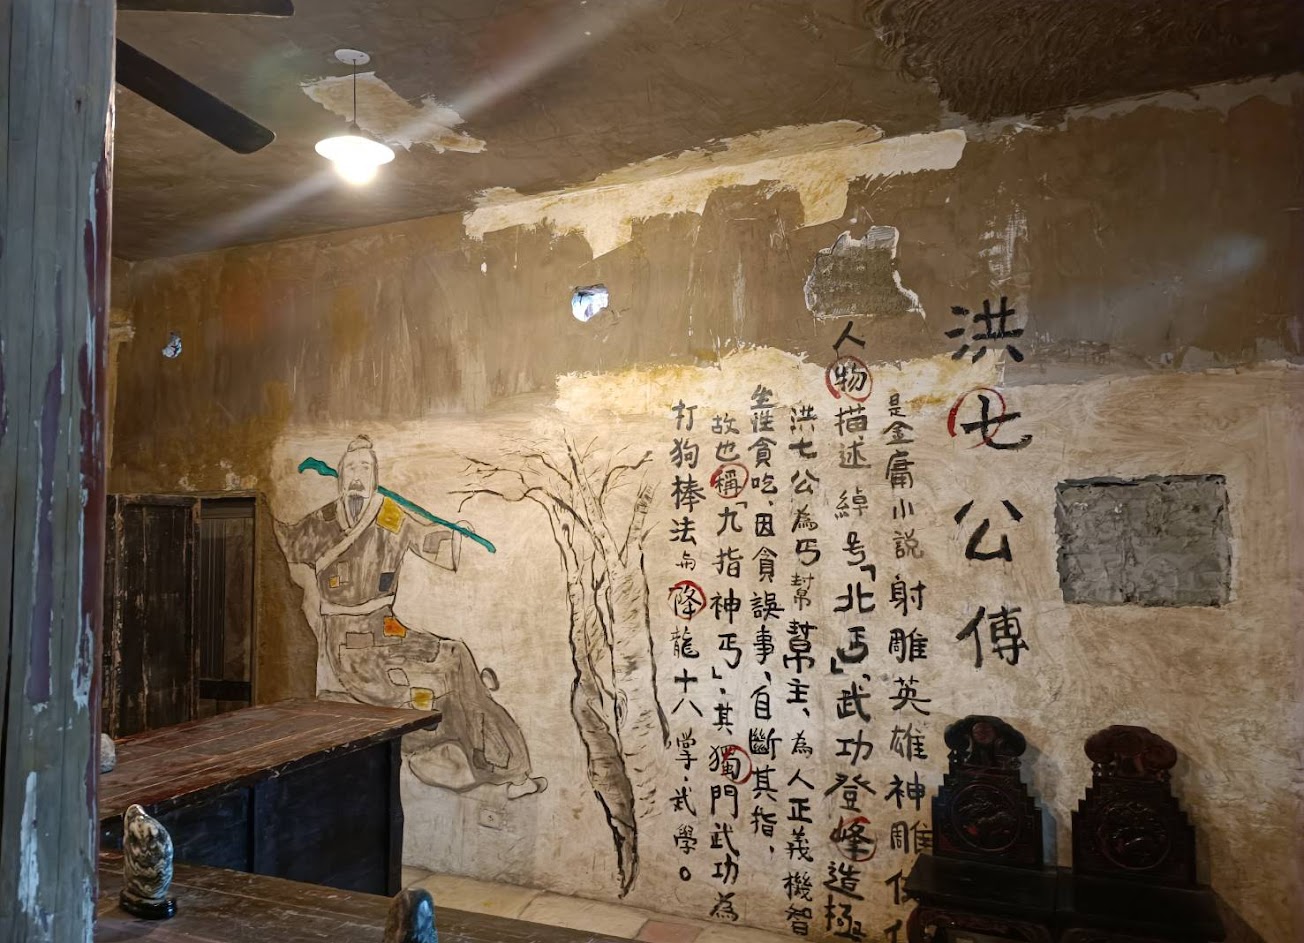 洪七公傳
是金庸小説射雕英雄神雕俠
人物描述綽号「北丐」武功登峰造極
洪七公為丐幫幫主、為人正義機智
生性貪吃、因貪誤事、自斷其指、
故也稱「九指神丐」．其獨門武功為
打狗棒法与降龍十八掌．武學。